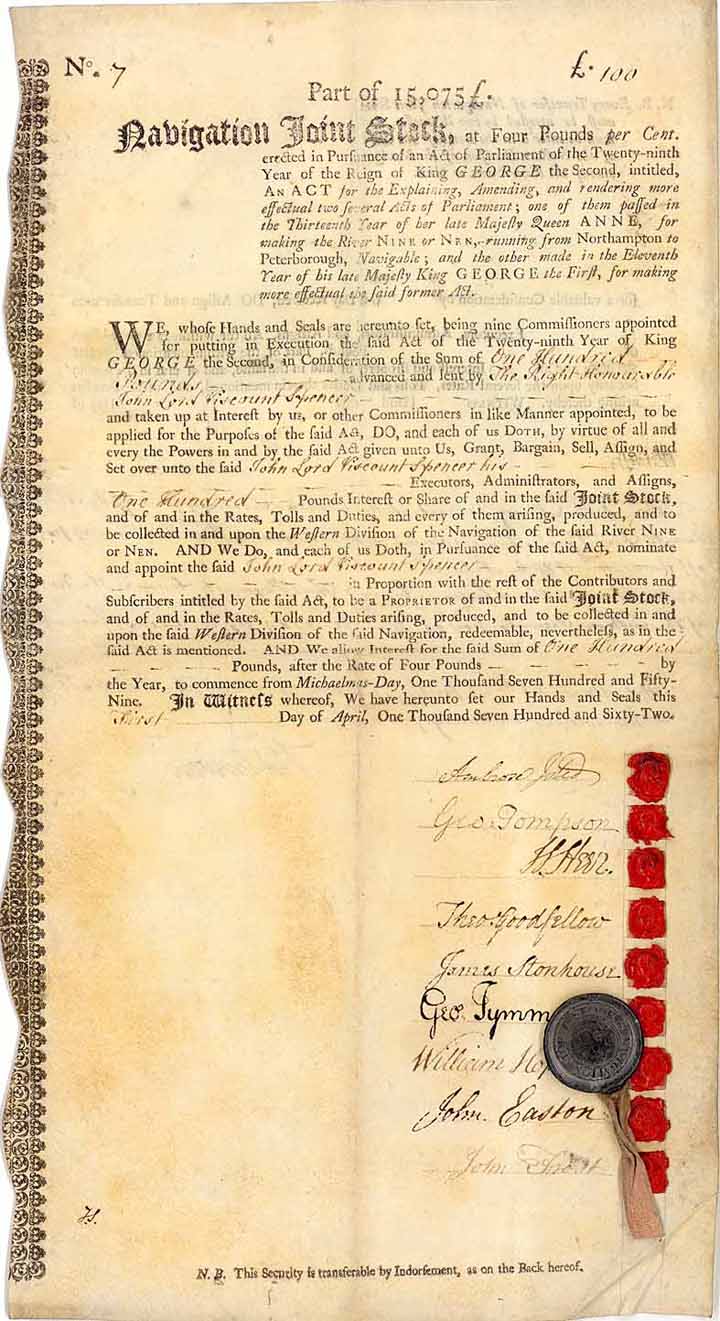 No. 7 £. 100
Part of 15,075£.
Navigation Joint Stock, at Four Pounds per Cent.
erected in Purſuance of an Act of Parliament of the Twenty-ninth
Year of the Reign of King GEORGE the Second, intitled,
AN ACT for the Explaining, Amending, and rendering more
effectual two ſeveral Acts of Parliament; one of them paſſed in
the Thirteenth Year of her late Majeſty Queen ANNE, for
making the River NINE OR NEN, running from Northampton to
Peterborough, Navigable; and the other made in the Eleventh
Year of his late Majeſty King GEORGE the Firſt, for making
more effectual the ſaid former Act.
WE, whoſe Hands and Seals are hereunto ſet, being nine Commiſſioners appointed
for putting in Execution the ſaid Act of the Twenty-ninth Year of King
GEORGE the Second, in Conſideration of the Sum of One Hundred
Pounds advanced and lent by The Right Honourable
John Lord Viscount Spencer
and taken up at Intereſt by us, or other Commiſſioners in like Manner appointed, to be
applied for the Purpoſes of the ſaid Act, DO, and each of us DOTH, by virtue of all and
every the Powers in and by the ſaid Act given unto Us, Grant, Bargain, Sell, Aſſign, and
Set over unto the ſaid John Lord Viscount Spencer his
Executors, Adminiſtrators, and Aſſigns,
One Hundred Pounds Intereſt or Share of and in the ſaid Joint Stock,
and of and in the Rates, Tolls and Duties, and every of them ariſing, produced, and to
be collected in and upon the Weſtern Diviſion of the Navigation of the ſaid River NINE
OR NEN. AND We Do, and each of us Doth, in Purſuance of the ſaid Act, nominate
and appoint the ſaid John Lord Viscount Spencer
in Proportion with the reſt of the Contributors and
Subſcribers intitled by the ſaid Act, to be a PROPRIETOR of and in the ſaid Joint Stock,
and of and in the Rates, Tolls and Duties ariſing, produced, and to be collected in and
upon the ſaid Weſtern Diviſion of the ſaid Navigation, redeemable, nevertheleſs, as in the
ſaid Act is mentioned. AND We allow Intereſt for the ſaid Sum of One Hundred
Pounds, after the Rate of Four Pounds by
the Year, to commence from Michaelmas-Day, One Thouſand Seven Hundred and Fifty-
Nine. In Witneſs whereof, We have hereunto ſet our Hands and Seals this
First Day of April, One Thouſand Seven Hundred and Sixty-Two.
Ambrose
Geo Tompson
Theo: Goodfellow
James Stonhouse
Geo. Tymm
William
John Easton
John
N. B. This Security is transferable by Indorſement, as on the Back hereof.